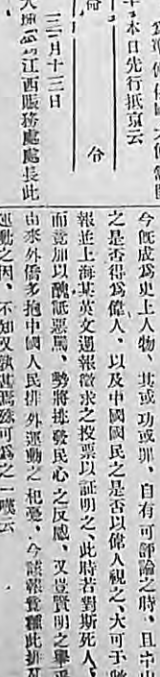 本日先行抵京云
命
令
三月十三日
江西賑務處處長此
今旣成爲史上人物、其或功或罪、自有可評論之時、且中山
之是否得爲偉人、以及中國國民之是否以偉人視之、大可于
報並上海某英文週報徵求之投票以証明之、此時若對斯死人、
而竟加以醜詆惡罵、勢將排發民心之反感、又豈賢明之舉乎
由來外僑多抱中國人民排外運動之杞憂、今該報實種此排
運動之因、不知又孰甚焉殊可爲之一嘆云